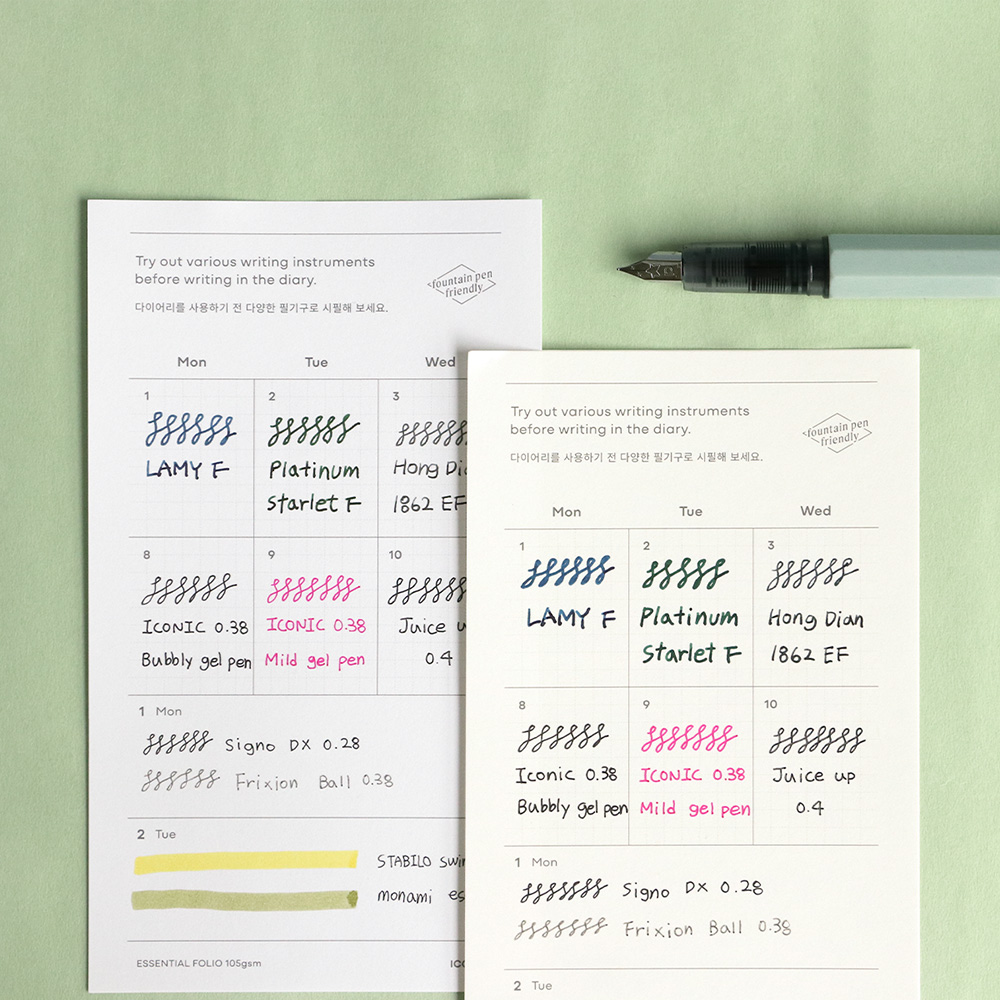 Try out various writing instruments
before writing in the diary.
다이어리를 사용하기 전 다양한 필기구로 시필해 보세요.
fountain pen
friendly
Mon Tue Wed
1 2 3
LAMY F
Platinum
Starlet F
Hong
1862 EF
8 9 10
ICONIC 0.38
Bubbly gel pen
ICONIC 0.38
Mild gel pen
Juice
0.4
1 Mon
Signo DX 0.28
Frixion Ball 0.38
2 Tue
STABILO
monami
ESSENTIAL FOLIO 105gsm
Try out various writing instruments
before writing in the diary.
다이어리를 사용하기 전 다양한 필기구로 시필해 보세요.
fountain pen
friendly
Mon Tue Wed
1 2 3
LAMY F
Platinum
Starlet F
Hong Dian
1862 EF
8 9 10
Iconic 0.38
Bubbly gel pen
ICONIC 0.38
Mild gel pen
Juice up
0.4
1 Mon
Signo DX 0.28
Frixion Ball 0.38
2 Tue